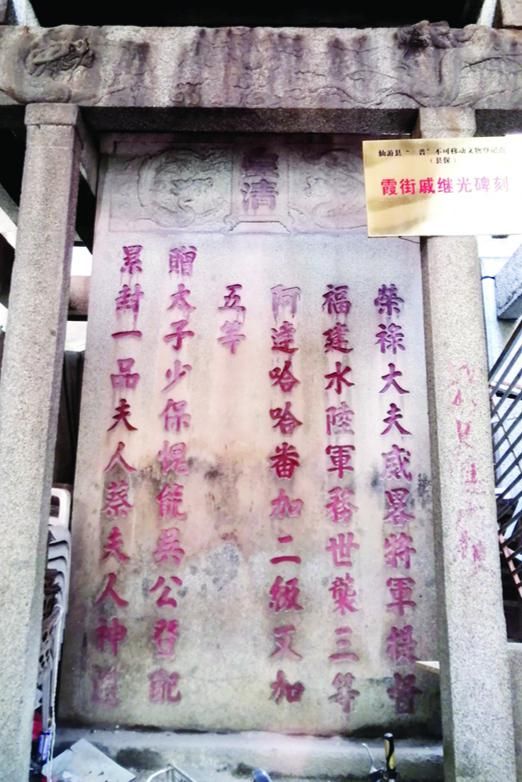 仙游县“三普”不可移动文物登记点
(县保)
霞街戚继光碑刻
皇清
榮祿大夫威畧將軍提督
福建水陸軍務世襲三等
阿達哈哈番加二級又加
五等
贈太子少保愧能吳公暨配
累封一品夫人蔡夫人神道